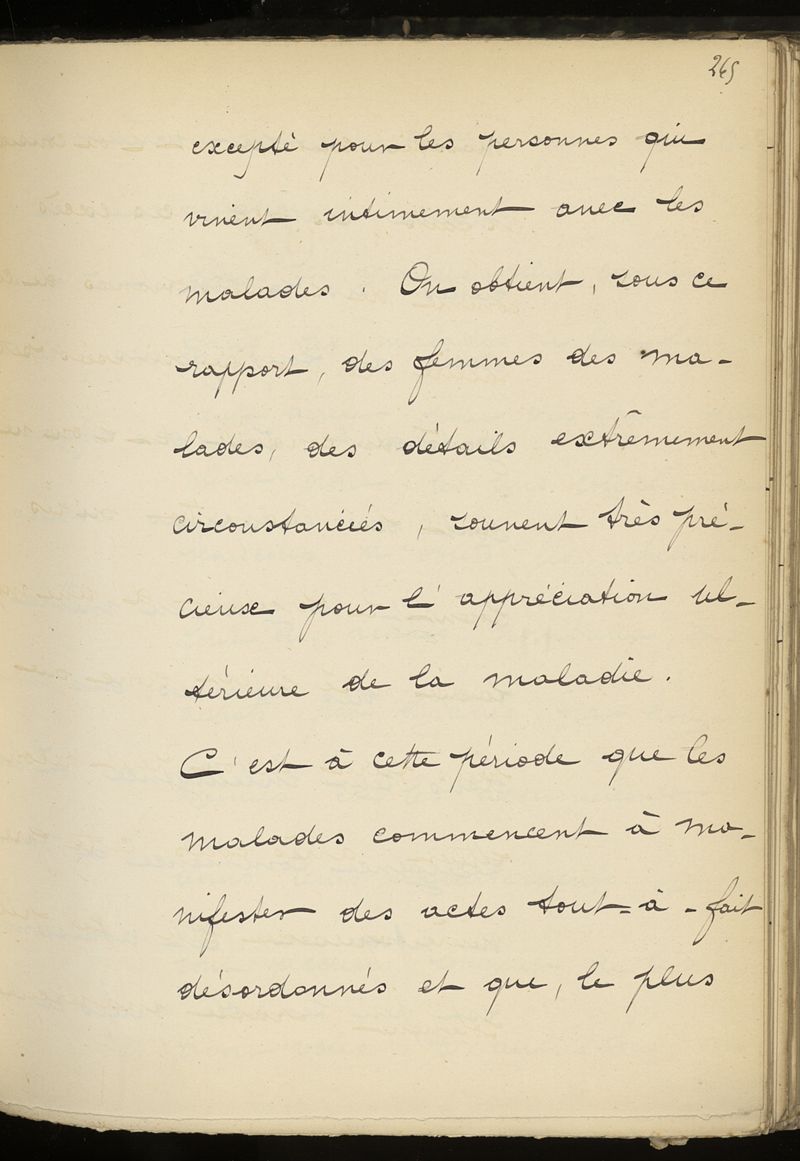 265
excepté pour les personnes qui
vivent intimement avec les
malades. On obtient, sous ce
rapport, des femmes des ma-
lades, des détails extrêmement
circonstanciés, souvent très pré-
cieux pour l'appréciation ul-
térieure de la maladie.
C'est à cette période que les
malades commencent à ma-
nifester des actes tout-à-fait
désordonnés et que, le plus